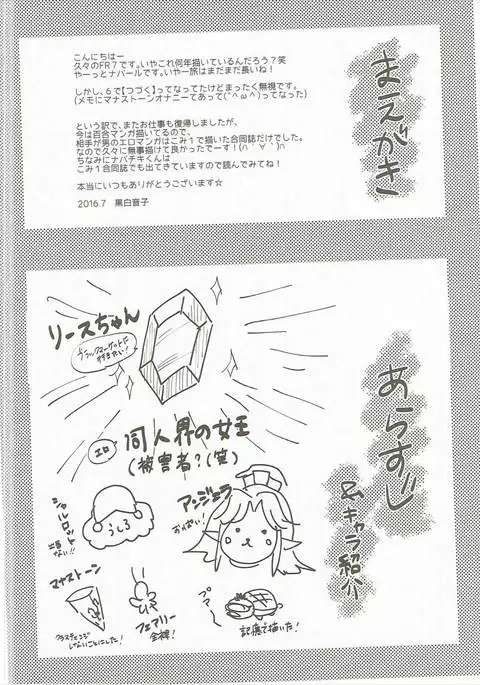 まえがき
こんにちはー
久々のFR7です。いやこれ何年描いているんだろう？笑
やーっとナバールです。いやー旅はまだまだ長いね！
しかし、6で【つづく】ってなってたけどまったく無視です。
(メモにマナストーンオナニーてあって(＾ω＾)ってなった)
という訳で、またお仕事も復帰しましたが、
今は百合マンガ描いてるので、
相手が男のエロマンガはこみ1で描いた合同誌だけでした。
なので久々に無事描けて良かったでーす！(∩´∀`)∩
ちなみにナバチキくんは
こみ1合同誌でも出てきていますので読んでみてね！
本当にいつもありがとうございます☆
2016.7　黒白音子
あらすじ
&キャラ紹介
リースちゃん
ブラックマーケットに
行きたい！
エロ
同人界の女王
(被害者？(笑)
シャルロット
出番
ない!!
うしろ
アンジェラ
おっぱい！
マナストーン
クラスチェンジ
しないことにした！
フェアリー
全裸！
プァ〜
記憶で描いた！